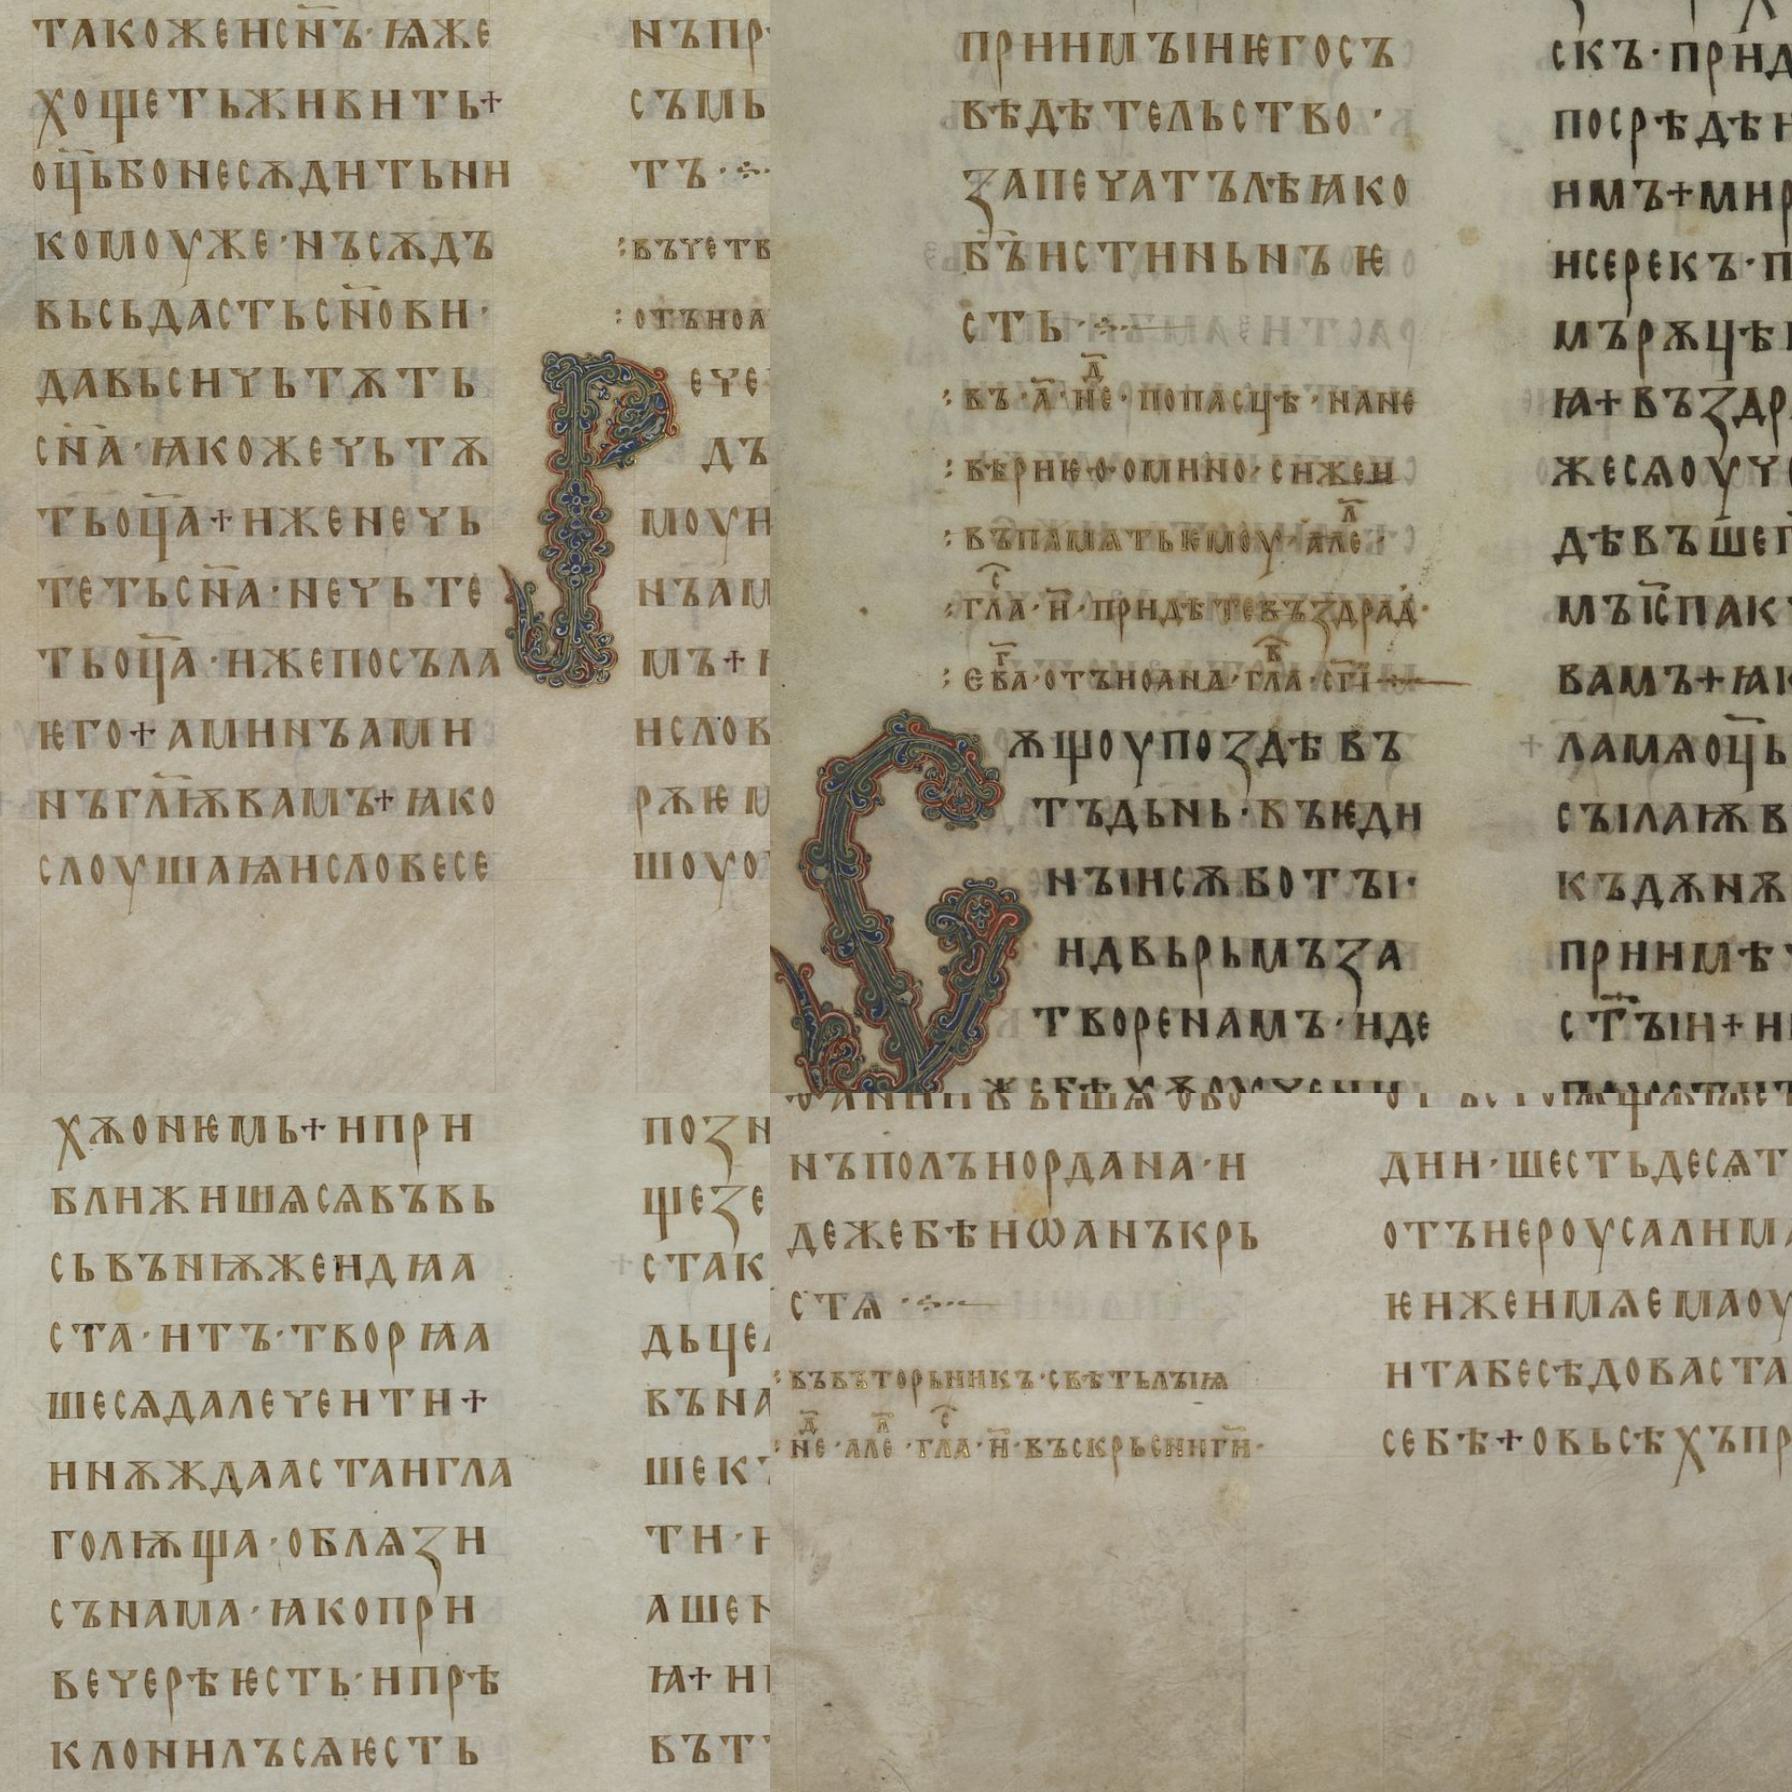 ТАКОЖЕИСН҃Ъ·ꙖЖЕ
ХОЩЕТЬЖИВИТЬ+
ОЦ҃ЬБОНЕСѪДИТЬНИ
КОМОУЖЕ·НЪСѪДЪ
ВЬСЬДАСТЬСН҃ОВИ·
ДАВЬСИЧЬТѪТЬ
СН҃А·ꙖКОЖЕЧЬТѪ
ТЬОЦ҃А+ИЖЕНЕЧЬ
ТЕТЬСН҃А·НЕЧЬТЕ
ТЬОЦ҃А·ИЖЕПОСЪЛА
ѤГО+АМИНЪАМИ
НЪГЛ҃ѬВАМЪ+ꙖКО
СЛОУШАꙖИСЛОВЕСЕ
НЪПР
СЪМЬ
ТЪ·
:ВЪЧЕТВ
:ОТЪИОА
РЕЧЕ
ДЪ
МОУИ
НЪАМ
МЪ+
ИСЛОВ
РѪѤМ
ШОУО
ПРИИМЪІИѤГОСЪ
ВѢДѢТЕЛЬСТВО·
ЗАПЕЧАТЪЛѢꙖКО
Б҃ЪИСТИНЬНЪѤ
СТЬ·
:ВЪ·А҃·НЕⷣ·ПОПАСЦѢ·НАНЕ
:ВѢРИѤ·О·ОМИНО·СИЖЕН
:ВЪПАМѦТЬѤМОУ·АЛЕⷧ·
:ГЛАⷭ·И҃·ПРИДѢТЕВЪЗДРАД·
:ЕВАⷢ·ОТЪИОАНА·ГЛАⷡ·СГ҃І
СѪЩОУПОЗДѢВЪ
ТЪДЬНЬ·ВЪѤДИ
НЪІИСѪБОТЪІ·
ИДВЬРЬМЪЗА
ТВОРЕНАМЪ·ИДЕ
ЖЕБѢХѪОУЧЕНИ
СКЪ·ПРИД
ПОСРѢДѢ
ИМЪ+МИР
ИСЕРЕКЪ·П
МЪРѪЦѢ
Ꙗ+ВЪЗДР
ЖЕСѦОУЧ
ДѢВЪШЕ
МЪІС҃ПАК
ВАМЪ+ꙖК
ЛАМѦОЦ҃Ь
СЪІЛАѬВ
КЪДѪНѪ
ПРИИМѢ
СТ҃ЪІИ+И
ХѪОНѤМЬ+ИПРИ
БЛИЖИШѦСѦВЪВЬ
СЬВЪНѬЖЕИДꙖА
СТА·ИТЪ·ТВОРꙖА
ШЕСѦДАЛЕЧЕИТИ+
ИНѪЖДААСТАИГЛА
ГОЛѬЩА·ОБЛѦЗИ
СЪНАМА·ꙖКОПРИ
ВЕЧЕРѢѤСТЬ·ИПРѢ
КЛОНИЛЪСѦѤСТЬ
ПОЗН
ЩЕЗЕ
СТАК
ДЬЦЕ
ВЪНА
ШЕКЪ
ТИ·И
АШЕ
Ꙗ+И
ВЪТ
НЪПОЛЪИОРДАНА·И
ДЕЖЕБѢИѠАНЪКРЬ
СТѦ·
:ВЪВЪТОРЬНИКЪ·СВѢТЬЛЪІѨ
:НЕⷣ·АЛЕⷧ·ГЛАⷭ·И҃·ВЪСКРЬСНИГИ҃·
ДНИ·ШЕСТЬДЕСѦТ
ОТЪИЕРОУСАЛИМА
ѤИЖЕИМѦЕМАОУ
ИТАБЕСѢДОВАСТА
СЕБѢ+ОВЬСѢХЪПР